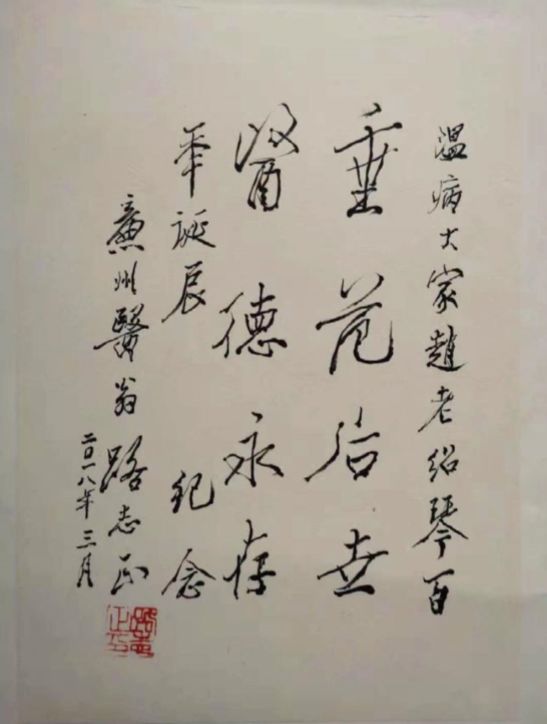 温病大家趙老绍琴百
垂范后世
醫德永存
年诞辰 纪念
藁州醫翁路志正
二〇一八年三月
路志正